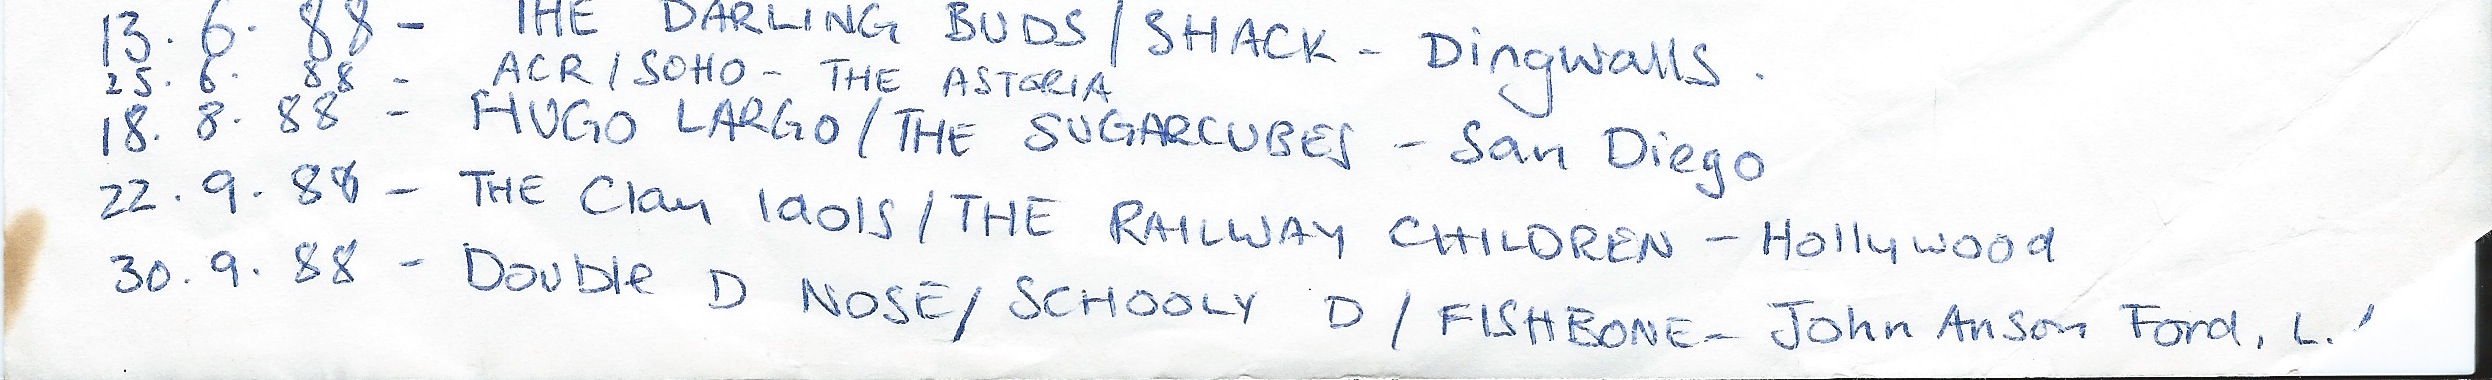 13. 6. 88 - THE DARLING BUDS / SHACK - Dingwalls.
25. 6. 88 - ACR / SOHO - THE ASTORIA
18. 8. 88 - HUGO LARGO / THE SUGARCUBES - San Diego
22. 9. 88 - THE Clay Idols / THE RAILWAY CHILDREN - Hollywood
30. 9. 88 - Double D NOSE / SCHOOLY D / FISHBONE - John Anson Ford, L.